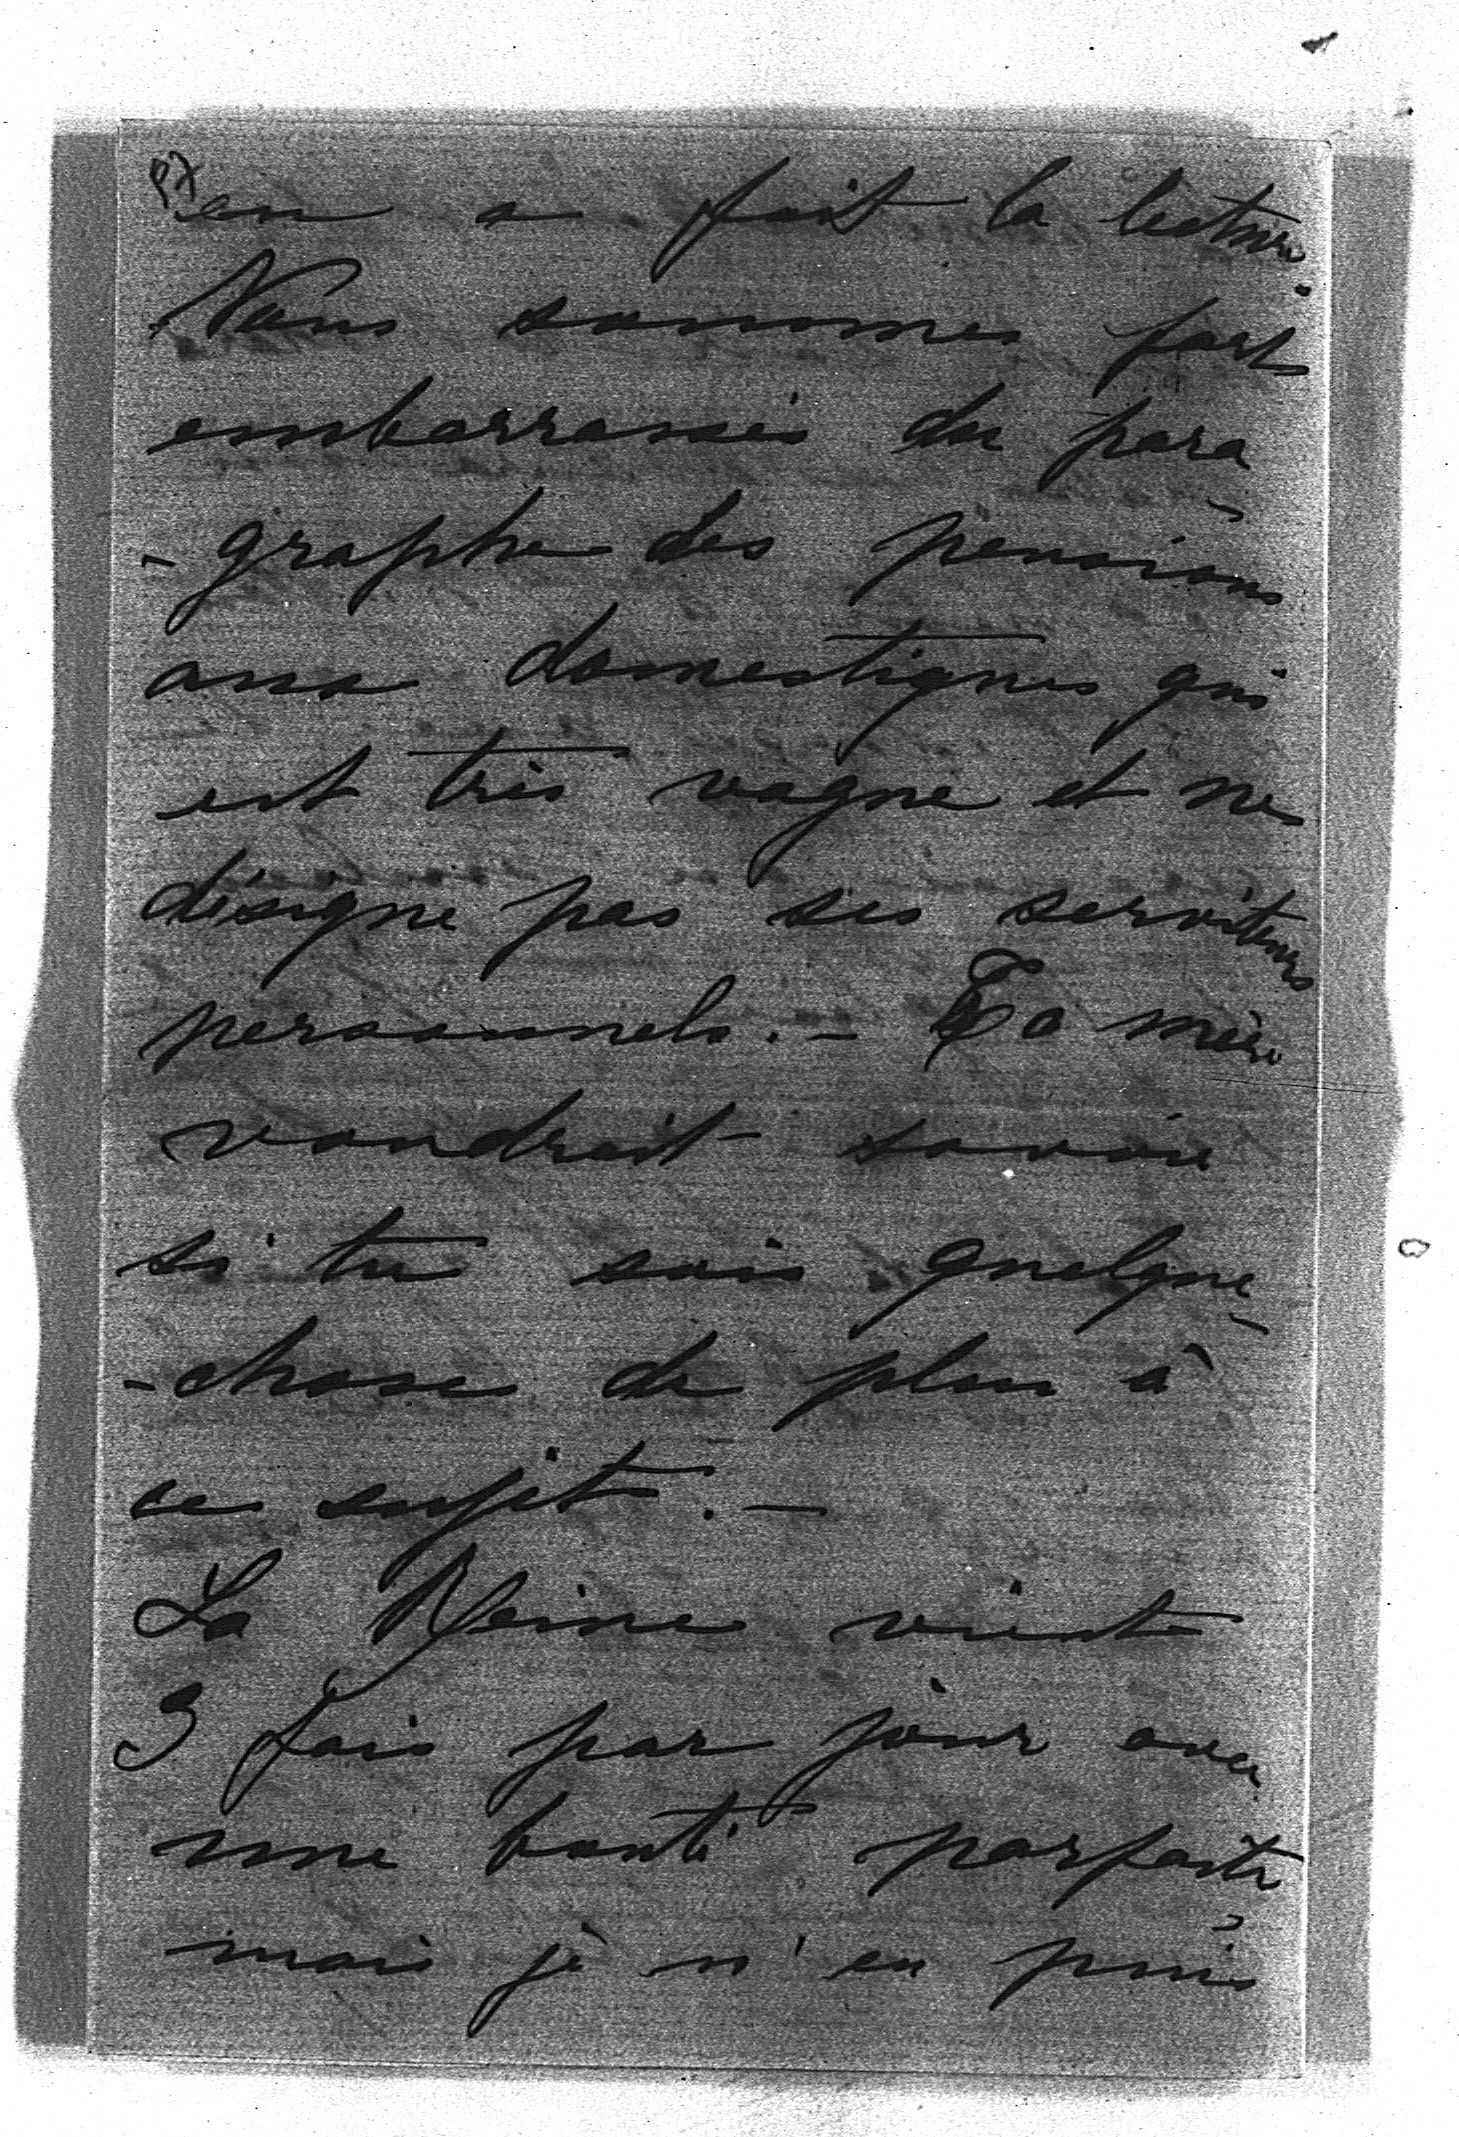 en a fait la lecture.
Nous sommes fort
embarrassés du para-
-graphe des pensions
aux domestiques qui
est très vague et ne
désigne pas ses serviteurs
personnels. - Ta mère
voudrait savoir
si tu sais quelque-
-chose de plus à
ce sujet. -
La Reine vient
3 fois par jour avec
une bonté parfaite
mais je n'en puis